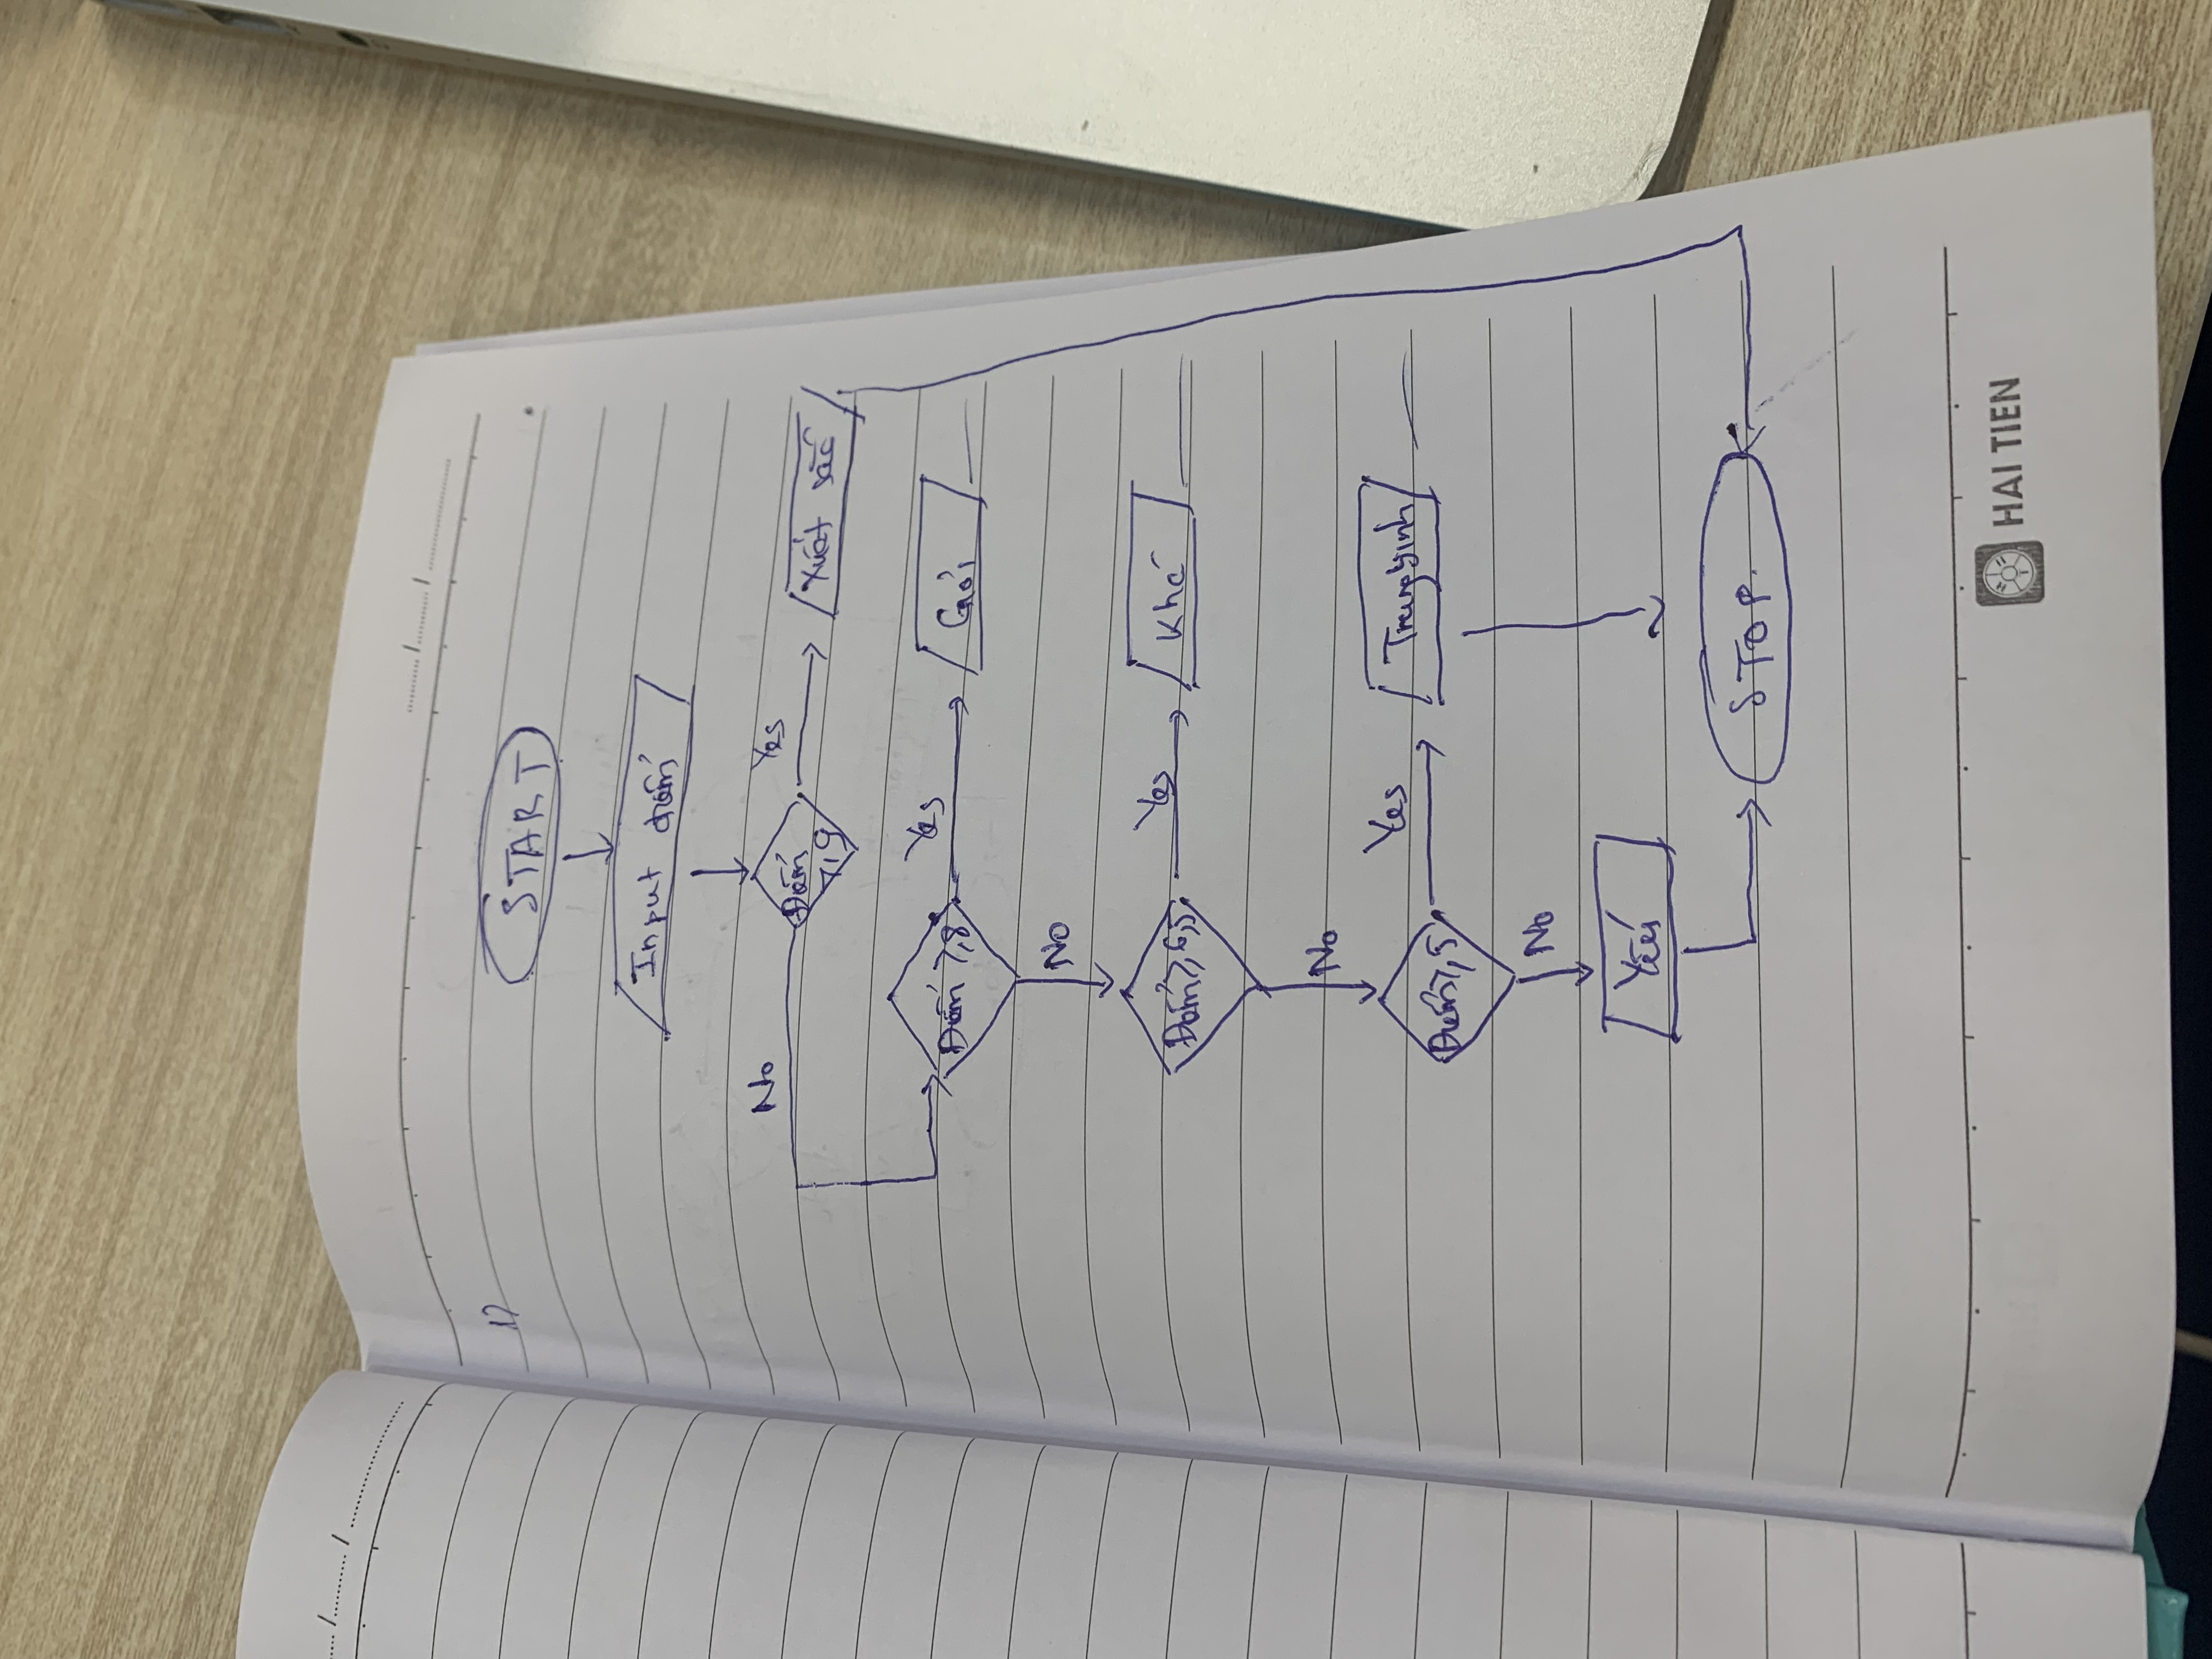 1)
START
Input điểm
No
Điểm
≥ 9
Yes
Xuất sắc
Điểm ≥ 8
Yes
Giỏi
No
Điểm ≥ 6,5
Yes
Khá
No
Điểm ≥ 5
Yes
Trung bình
No
Yếu
STOP.
HAI TIEN